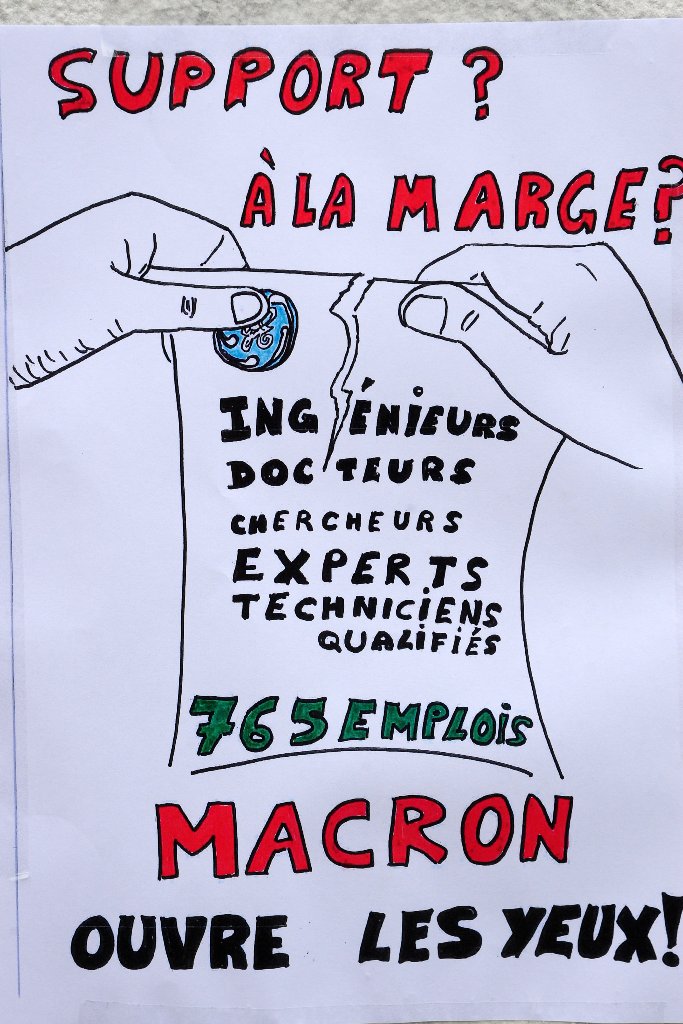 SUPPORT ?
À LA MARGE?
INGÉNIEURS
DOCTEURS
CHERCHEURS
EXPERTS
TECHNICIENS
QUALIFIÉS
765 EMPLOIS
MACRON
OUVRE LES YEUX!